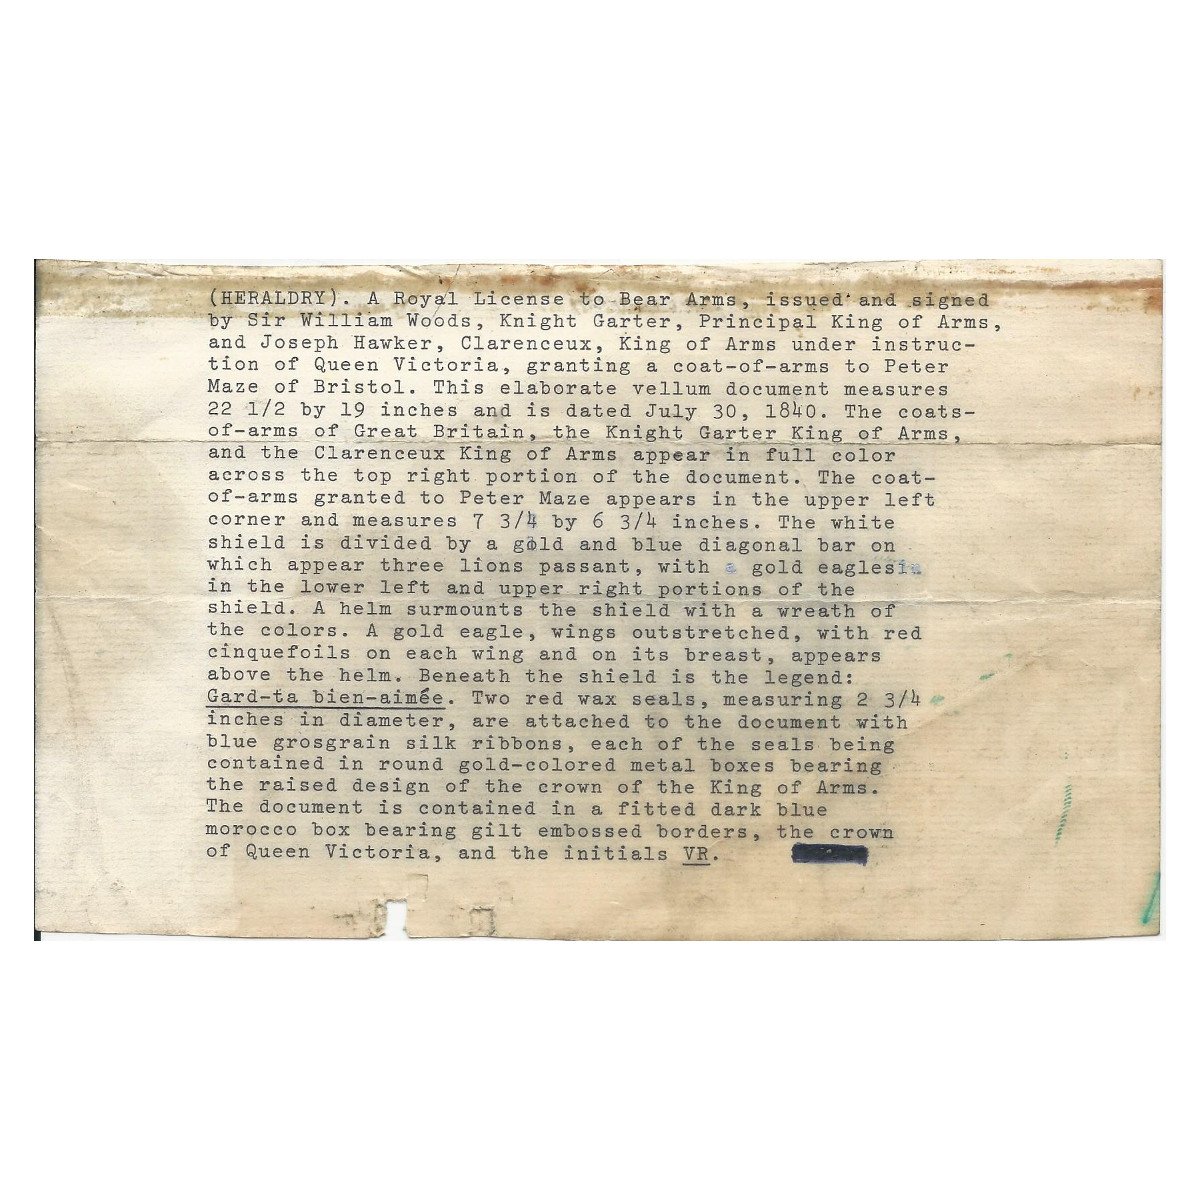 (HERALDRY). A Royal License to Bear Arms, issued and signed
by Sir William Woods, Knight Garter, Principal King of Arms,
and Joseph Hawker, Clarenceux, King of Arms under instruc-
tion of Queen Victoria, granting a coat-of-arms to Peter
Maze of Bristol. This elaborate vellum document measures
22 1/2 by 19 inches and is dated July 30, 1840. The coats-
of-arms of Great Britain, the Knight Garter King of Arms,
and the Clarenceux King of Arms appear in full color
across the top right portion of the document. The coat-
of-arms granted to Peter Maze appears in the upper left
corner and measures 7 3/4 by 6 3/4 inches. The white
shield is divided by a gold and blue diagonal bar on
which appear three lions passant, with a gold eagles in
in the lower left and upper right portions of the
shield. A helm surmounts the shield with a wreath of
the colors. A gold eagle, wings outstretched, with red
cinquefoils on each wing and on its breast, appears
above the helm. Beneath the shield is the legend:
Gard-ta bien-aimée. Two red wax seals, measuring 2 3/4
inches in diameter, are attached to the document with
blue grosgrain silk ribbons, each of the seals being
contained in round gold-colored metal boxes bearing
the raised design of the crown of the King of Arms.
The document is contained in a fitted dark blue
morocco box bearing gilt embossed borders, the crown
of Queen Victoria, and the initials VR.